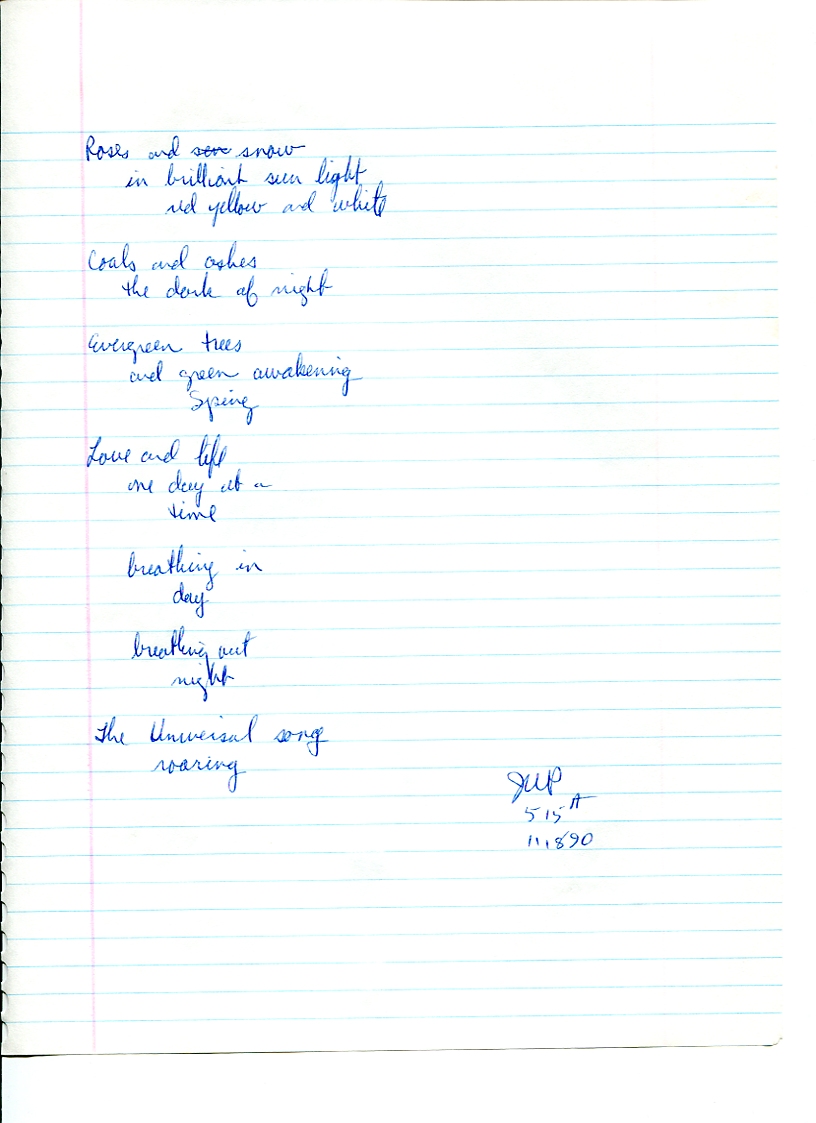 Roses and snow
in brilliant sun light
red yellow and white
Coals and ashes
the dark of night
Evergreen trees
and green awakening
Spring
Love and life
one day at a
time
breathing in
day
breathing out
night
The Universal song
roaring
JWP
515 A
11,890